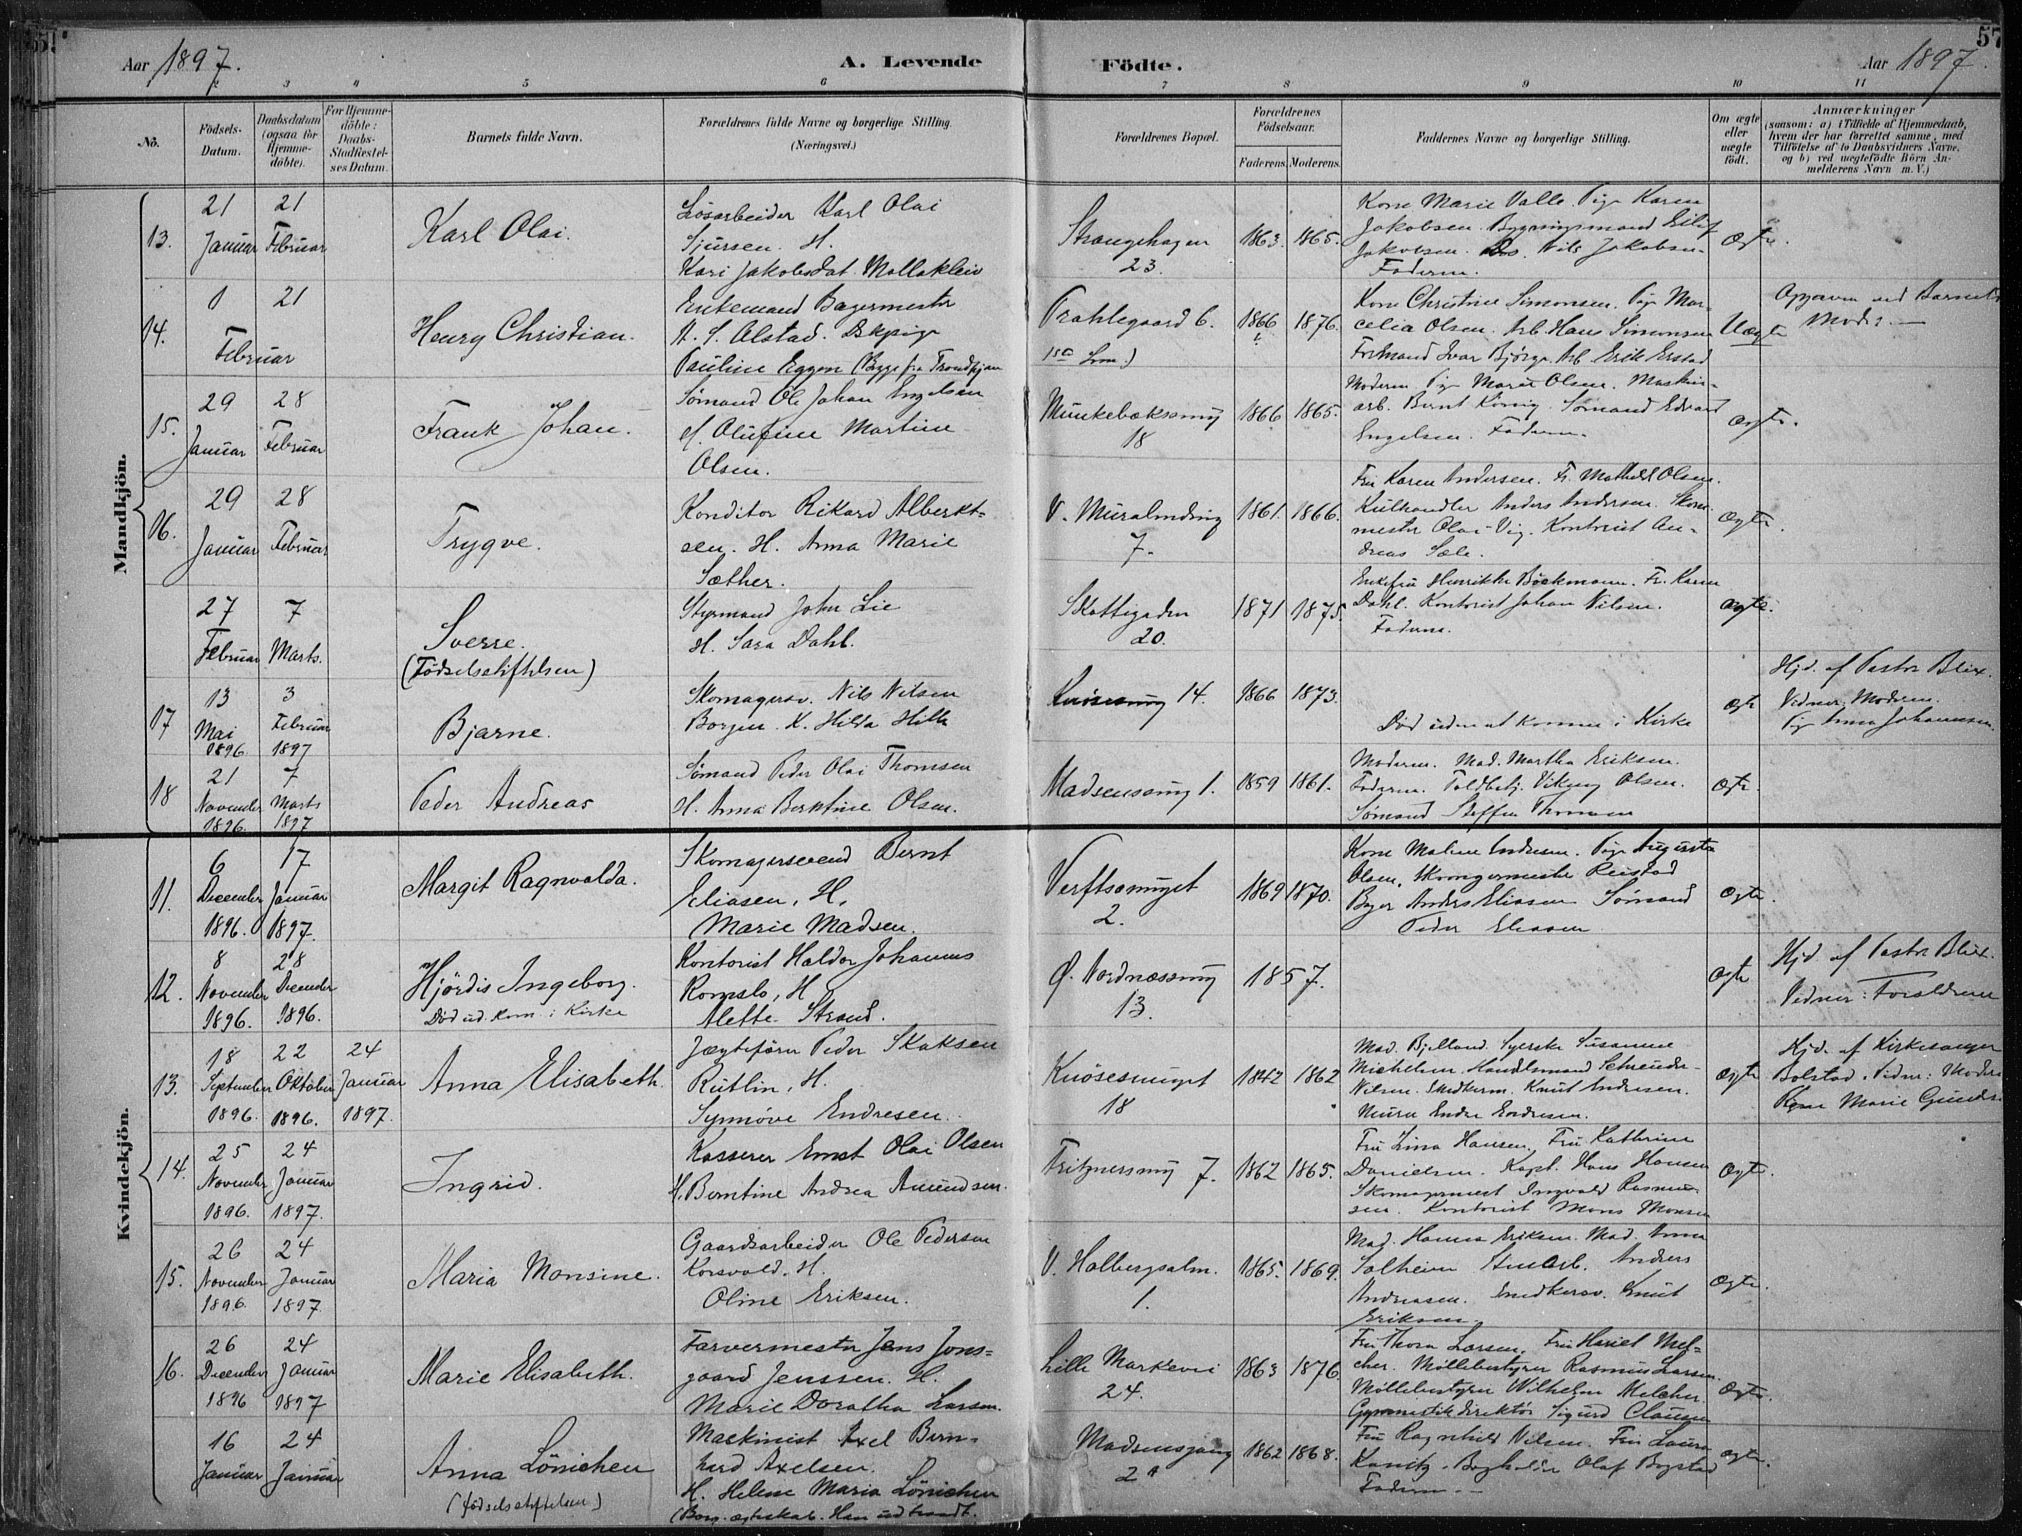 Aar 1897.
A. Levende Födte.
Aar 1897.
57
2 3 4 5 6 7 8 9 10 11
No.
Födsels-Datum.
Daabsdatum (ogsaa for Hjemme-döbte).
For Hjemme-döbte: Daabs-Stadfæstel-ses Datum.
Barnets fulde Navn.
Forældrenes fulde Navne og borgerlige Stilling. (Næringsvei.)
Forældrenes Bopæl.
Forældrenes Födselsaar.
Faderens. Moderens.
Faddernes Navne og borgerlige Stilling.
Om ægte eller uægte födt.
Anmærkninger
(saasom: a) i Tilfælde af Hjemmedaab,
hvem der har forrettet samme, med
Tilföielse af to Daabsvidners Navne,
og b) ved uægtefödte Börn An-
melderens Navn m. V.)
Mandkjön.
13.
21 Januar
21 Februar
Karl Olai.
Løsarbeider Karl Olai
Sjursen. H.
Kari Jakobsdat. Mollekleiv
Strangehagen
23.
1863. 1865.
Kone Marie Valle. Pige Karen
Jakobsen. Bygningsmand Eilif
Jakobsen. Nils Jakobsen.
Faderen.
Ægte.
14.
1 Februar
21
Henry Christian.
Enkemand Bagermester
A. S. Alstad.
Pauline Eggen (Begge fra Trondhjem
Prahlegaard 6.
1866 1876.
Kone Christine Simonsen. Pige Mar-
celia Olsen. Arb. Hans Simonsen
Formand Ivar Bjørge. Arb. Erik Erstad
Uægte
Opgaven ved Barnets
Moder. —
15.
29 Januar
28 Februar
Frank Johan.
Sømand Ole Johan Engelsen
H. Olufine Martine
Olsen.
Munkebæksmug
18
1866 1865.
Moderen. Pige Marie Olsen. Maskin-
arb. Bernt König. Sømand Edvard
Engelsen. Faderen.
ægte.
16.
29 Januar
28 Februar
Trygve.
Konditor Rikard Alberkt-
sen. H. Anna Marie
Sæther.
V. Muralmding
7.
1861. 1866.
Fru Karen Andersen. Fr. Mathild Olsen.
Kulhandler Anders Andersen. Skom.
mester Olai Vig. Kontorist An-
dreas Sæle.
ægte.
27 Februar
7 Marts.
Sverre.
(Fødselsstiftelsen)
Styrmand John Lie
H. Sara Dahl.
Skottegaden
20.
1871 1875.
Enkefru Henrikke Böckmann. Fr. Karen
Dahl. Kontorist Johan Nilsen.
Faderen.
ægte.
17
13 Mai 1896.
3 Februar 1897
Bjarne.
Skomagersv. Nils Nilsen
Borgen. H. Hilda Hille
Knøsesmug 14.
1866 1873.
Død uden at komme i Kirke
ægte
Hjd. af Pastor Blix.
Vidner: Moderen.
Pige Anna Johannesen.
18
21 November 1896.
7 Marts 1897
Peder Andreas
Sømand Peder Olai Thomsen
H. Anna Berktine Olsen.
Madsensmug 1.
1859 1861.
Moderen. Mad. Martha Eriksen.
Faderen. Toldbetj. Viking Olsen.
Sømand Steffen Thomsen
ægte.
Kvindekjön.
11.
6 December 1896.
17 Januar 1897.
Margit Ragnvalda.
Skomagersvend Bernt
Eliasen, H.
Marie Madsen.
Verftsmuget
2.
1869 1870.
Kone Malene Endresen. Pige Augusta
Olsen. Skomagermester Reistad
Bager Anders Eliasen Sømand
Peder Eliasen
ægte.
12.
8 November 1896.
28 December 1896.
Hjördis Ingeborg.
Død ud. Kom. i Kirke
Kontorist Haldor Johannes
Romslo, H.
Alette Strand.
Ø. Nordnæssmug
13.
1857.
ægte
Hjd. af Pastor Blix.
Vidner: Forældrene
13.
18 September 1896.
22 Oktober 1896.
24 Januar 1897.
Anna Elisabeth.
Jægtefører Peder Skaksen
Rutlin, H.
Synnöve Endresen.
Knösesmuget
18
1842 1862
Mad. Bjelland. Syerske Susanne
Michelsen. Handelsmand Schrender
Nilsen. Snedkerm. Knut Endresen.
Murer Endre Endresen.
ægte
Hjd. af Kirkesanger
Bolstad. Vidner: Moderen
Marie
14.
25 November 1896.
24 Januar 1897.
Ingrid.
Kasserer Ernst Olai Olsen
H. Berntine Andrea Amundsen.
Fritznersmug 7.
1862 1865.
Fru Lina Hansen. Fru Kathrine
Danielsen. Kapt. Hans Hansen
Skomagermest Ingvald Rasmus-
sen. Kontorist Mons Monsen
ægte.
15.
26 November 1896.
24 Januar 1897.
Maria Monsine.
Gaardsarbeider Ole Pedersen
Korsvold. H.
Oline Eriksen.
V. Holbergsalm.
1.
1865. 1869.
Mad. Hanna Eriksen. Mad. Anna
Solheim Anders
Andreasen. Snedkersv. Knut
Eriksen.
ægte.
16.
26 December 1896
24 Januar 1897
Marie Elisabeth.
Farvermester Jens Jons-
gaard Jenssen. H.
Marie Dorathea Larsen.
Lille Markevei
24.
1863 1876.
Fru Thora Larsen. Fru Hariet Mel-
cher. Møllebestyrer Rasmus Larsen
Møllebestyrer Wilhelm Melcher
Gymnastikdirektør Sigurd Clausen
ægte.
16 Januar
24 Januar
Anna Lönichen
(fødselsstiftelsen)
Maskinist Axel Bern-
hard Axelsen.
H. Helene Maria Lönichen
(Borg. ægteskab.
Madsensgang
2
1862 1868.
Fru Ragnhild Nilsen. Fru Laura
Kanitz. Bogholder Olaf Bogstad
Faderen. —
ægte.